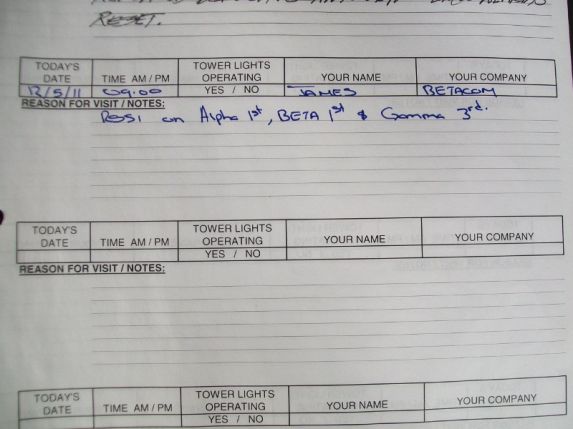 RESET.
TODAY'S DATE TIME AM / PM TOWER LIGHTS OPERATING YOUR NAME YOUR COMPANY
12/5/11 09:00 YES / NO JAMES BETACOM
REASON FOR VISIT / NOTES:
on Alpha 1st, BETA 1st & Gamma 3rd.
TODAY'S DATE TIME AM / PM TOWER LIGHTS OPERATING YOUR NAME YOUR COMPANY
YES / NO
REASON FOR VISIT / NOTES:
TODAY'S DATE TIME AM / PM TOWER LIGHTS OPERATING YOUR NAME YOUR COMPANY
YES / NO